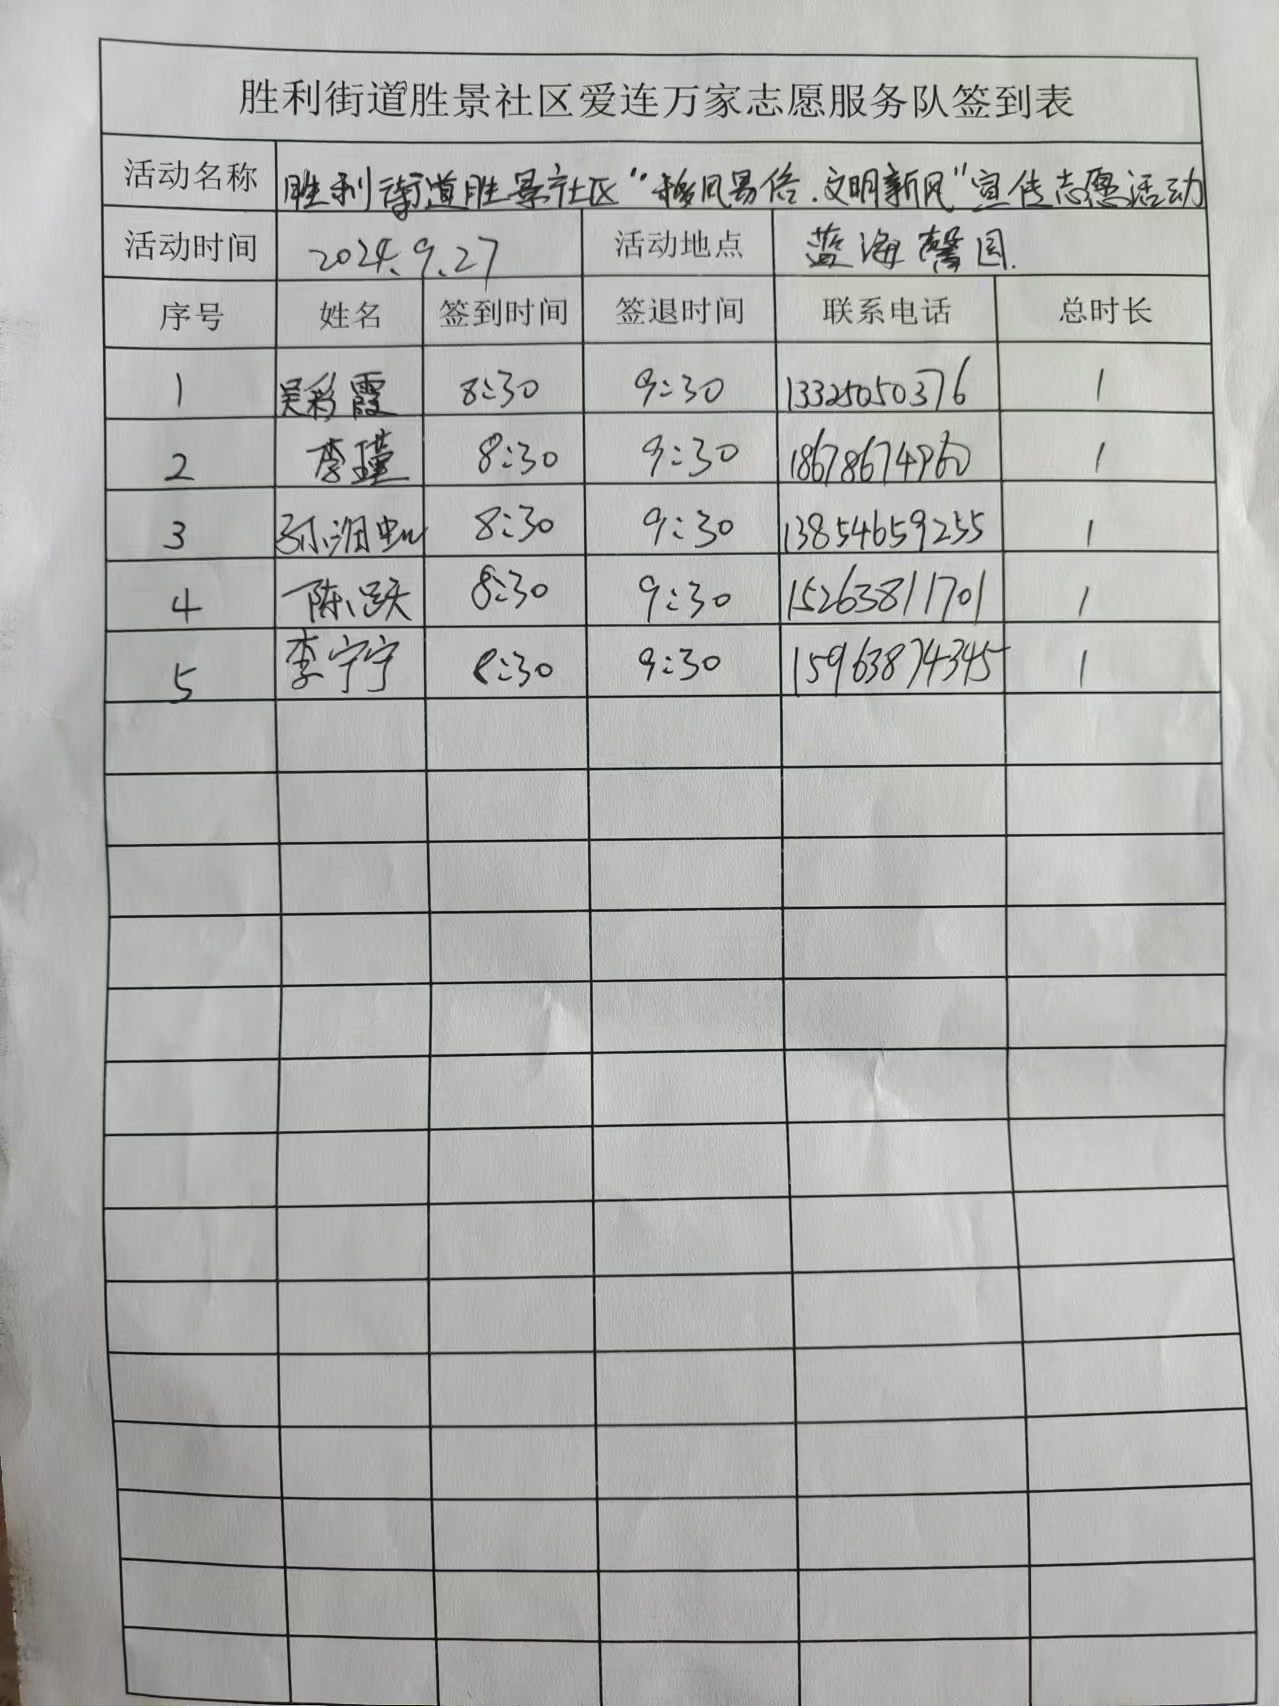 胜利街道胜景社区爱连万家志愿服务队签到表
活动名称 胜利街道胜景社区“移风易俗.文明新风”宣传志愿活动
活动时间 2024.9.27 活动地点 蓝海馨园.
序号 姓名 签到时间 签退时间 联系电话 总时长
1 吴彩霞 8:30 9:30 13325050376 1
2 李瑾 8:30 9:30 18678674960 1
3 8:30 9:30 13854659255 1
4 陈跃 8:30 9:30 15263811701 1
5 李宁宁 8:30 9:30 15963874345 1